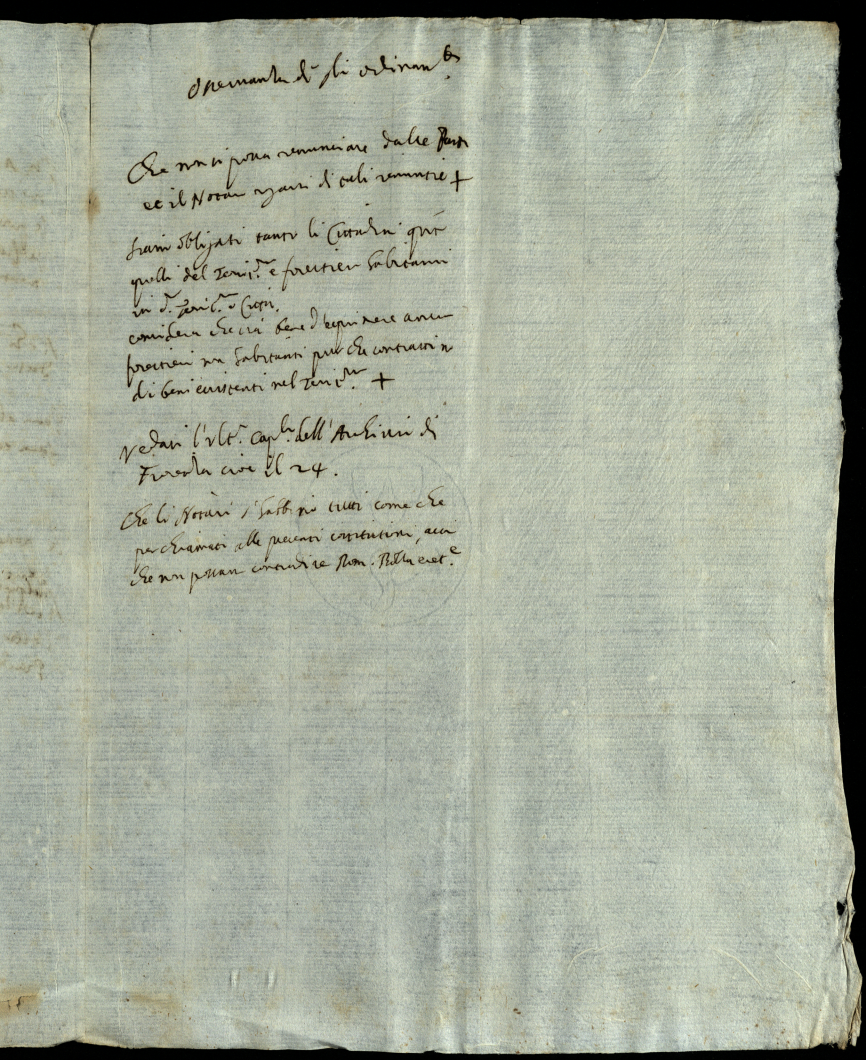 Osservanza de gli ordinan
Che non si possa renunciare dalle Parti
et il Notaro rogarsi di tali renuntie +
Siano obligati tanto li Cittadini quãto
quelli del Territ.º e forestieri habitanti
in d.º Territ.º o Città,
considera che sia bene d'esprimere ancor
forestieri non habitanti pur che contrattino
di beni existenti nel Territ.º +
Vedasi l'ult.º Cap.lo dell'Archivio di
Fiorenza cioè il 24.
Che li Notari s'habbino tutti come che
per chiamati alle presenti constitutioni, acciò
che non possano contradire Rom. Bolla